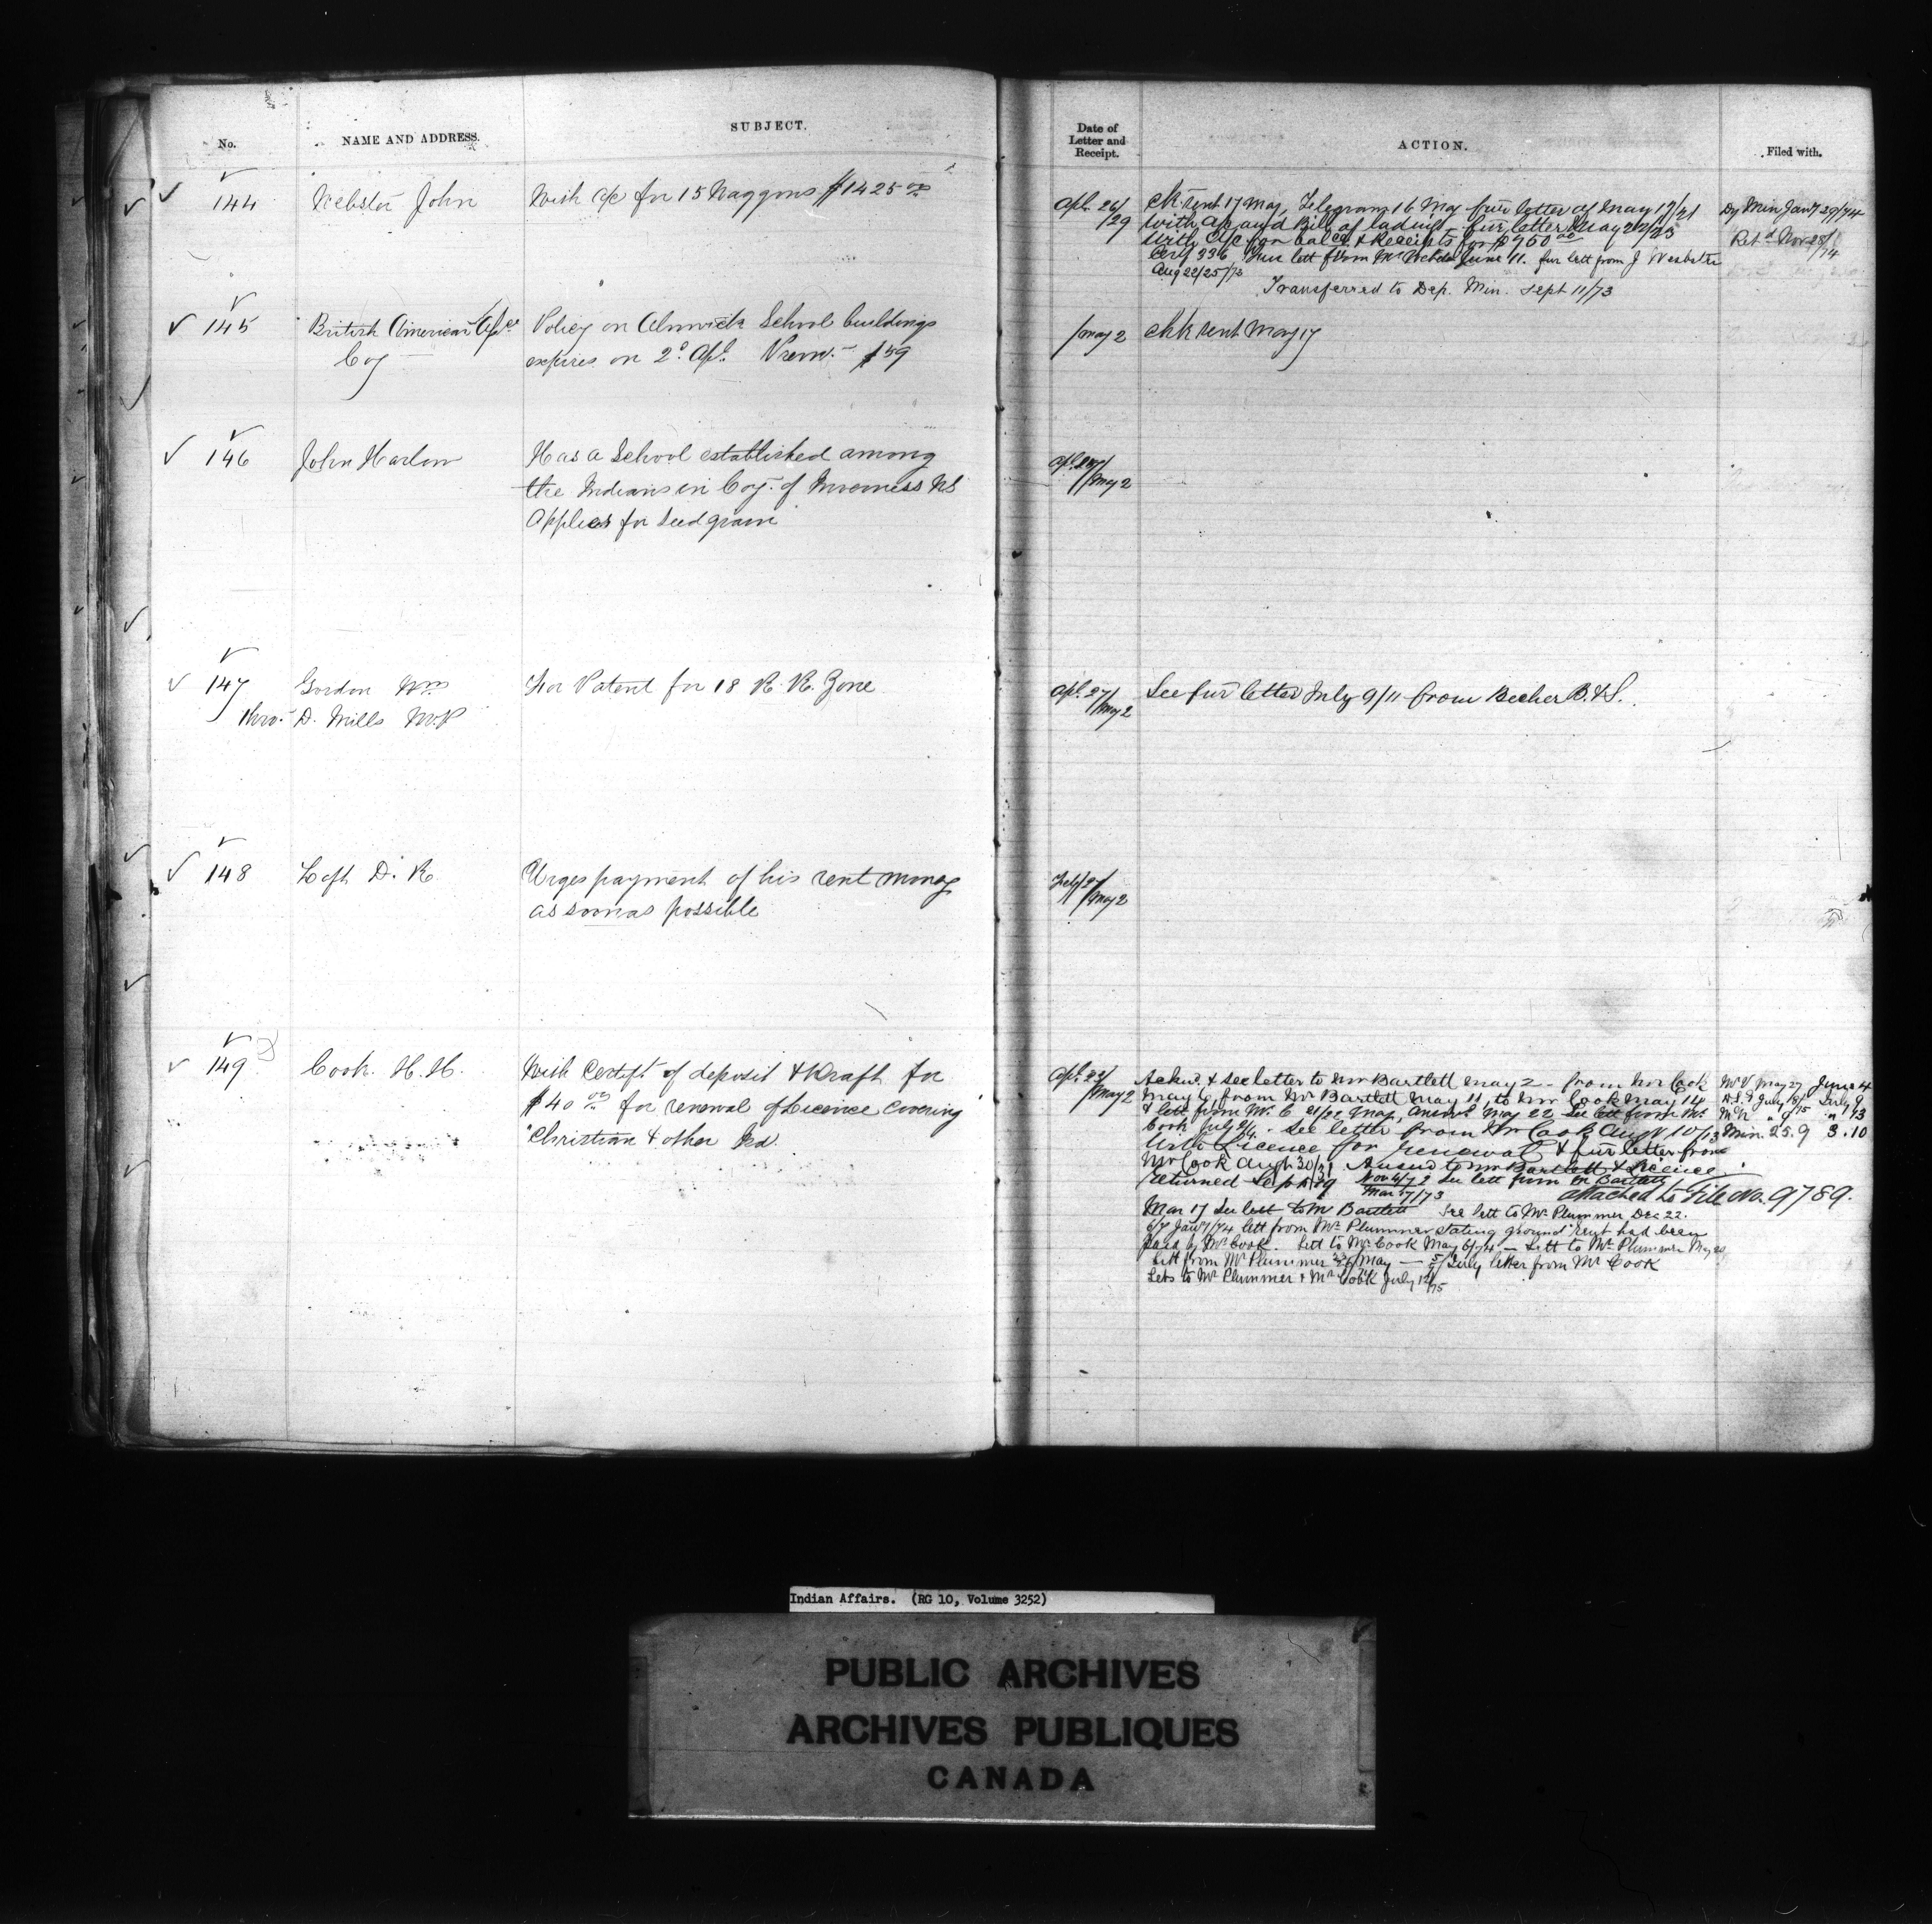 No.
NAME AND ADDRESS.
SUBJECT.
144
Webster John
With a/c for 15 Waggons $1425 00
145
British American
Coy
Policy on Alnwick School buildings
expires on 2d Apl. Prem. $59
146
John Harlow
Has a School established among
the Indians in Coy. of Inverness NS
Applies for Seed grain
147
Gordon Wm
thro. D. Mills M.P
For Patent for 18 R. R. Zone
148
Loft D. R.
Urges payment of his rent money
as soon as possible
149
Cook H. H.
With Certift of deposit & draft for
$40 for renewal of Licence covering
Christian & other Isd.
Date of
Letter and
Receipt.
ACTION.
Filed with.
Apl. 26/
/29
Chk sent 17 May, Telegram 16 May fur letter of May 17/21
with a/c and Bill of lading - fur letter May 22/23
With a/c for balce & Receipts for $950 00
Cerf 336 Fur lett from Mr Webster June 11. fur lett from J Webster
Aug 22/25/73
Transferred to Dep. Min. Sept 11/73
Dy Min Jany 29/74
Retd Nov 28/
/74
/May 2
Chk sent May 17
/May 2
Apl. 27/
/May 2
See fur letter July 9/11 from Becher B. & S.
/May 2
/May 2
Ackd. & see letter to Mr Bartlett May 2 - from Mr Cook
May 6, from Mr Bartlett May 11, to Mr Cook May 14
& lett from Mr C 21/22 May, answd May 22 See lett from Mr
Cook July 2/4. See letter from Mr Cook Augt 10/13
With Licence for renewal & fur letter from
Mr Cook Augt 30/31 Answd to Mr Bartlett & Licence
returned Sept 19 Nov 4/72 See lett from Mr Bartlett
Mar 17/73
attached to File No. 9789.
Mar 17 See lett to Mr Bartlett See lett to Mr Plummer Dec 22.
6/7 Jany/74 lett from Mr Plummer stating ground rent had been
paid by Mr Cook. Lett to Mr Cook May 6/74 - Lett to Mr Plummer May
Lett from Mr Plummer May - July letter from Mr Cook
Lets to Mr Plummer & Mr Cook July 12/75
May 27 June 4
July July 9
Min. 25.9 3.10
Indian Affairs. (RG 10, Volume 3252)
PUBLIC ARCHIVES
ARCHIVES PUBLIQUES
CANADA